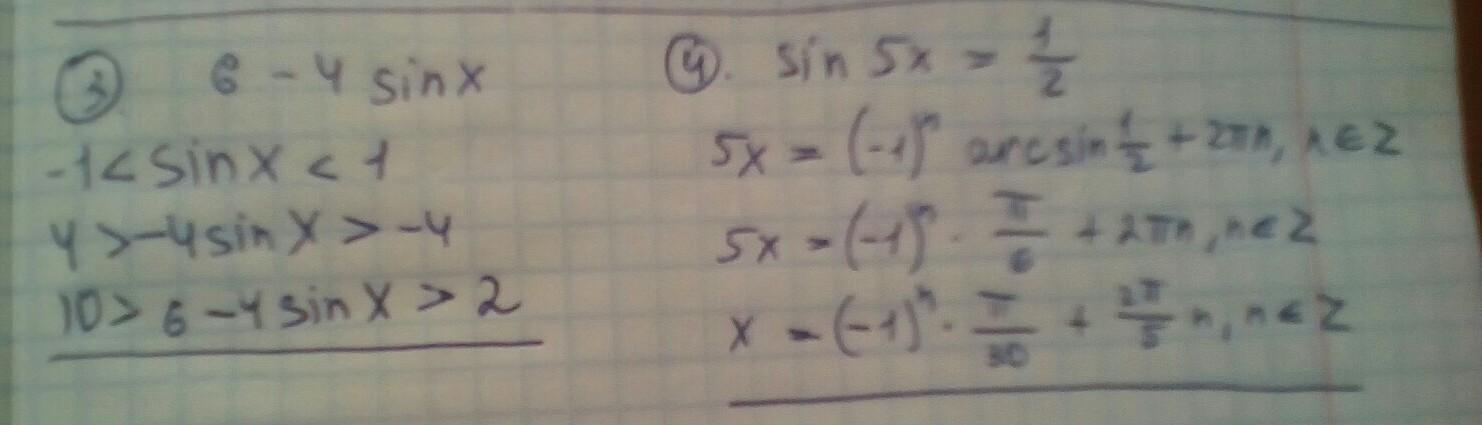 ③ 6 - 4 sin x
-1 < sin x < 1
4 > -4 sin x > -4
10 > 6 - 4 sin x > 2
④. sin 5x = 1/2
5x = (-1)ⁿ arcsin 1/2 + 2πn, n ∈ Z
5x = (-1)ⁿ · π/6 + 2πn, n ∈ Z
x = (-1)ⁿ · π/30 + 2π/5 n, n ∈ Z